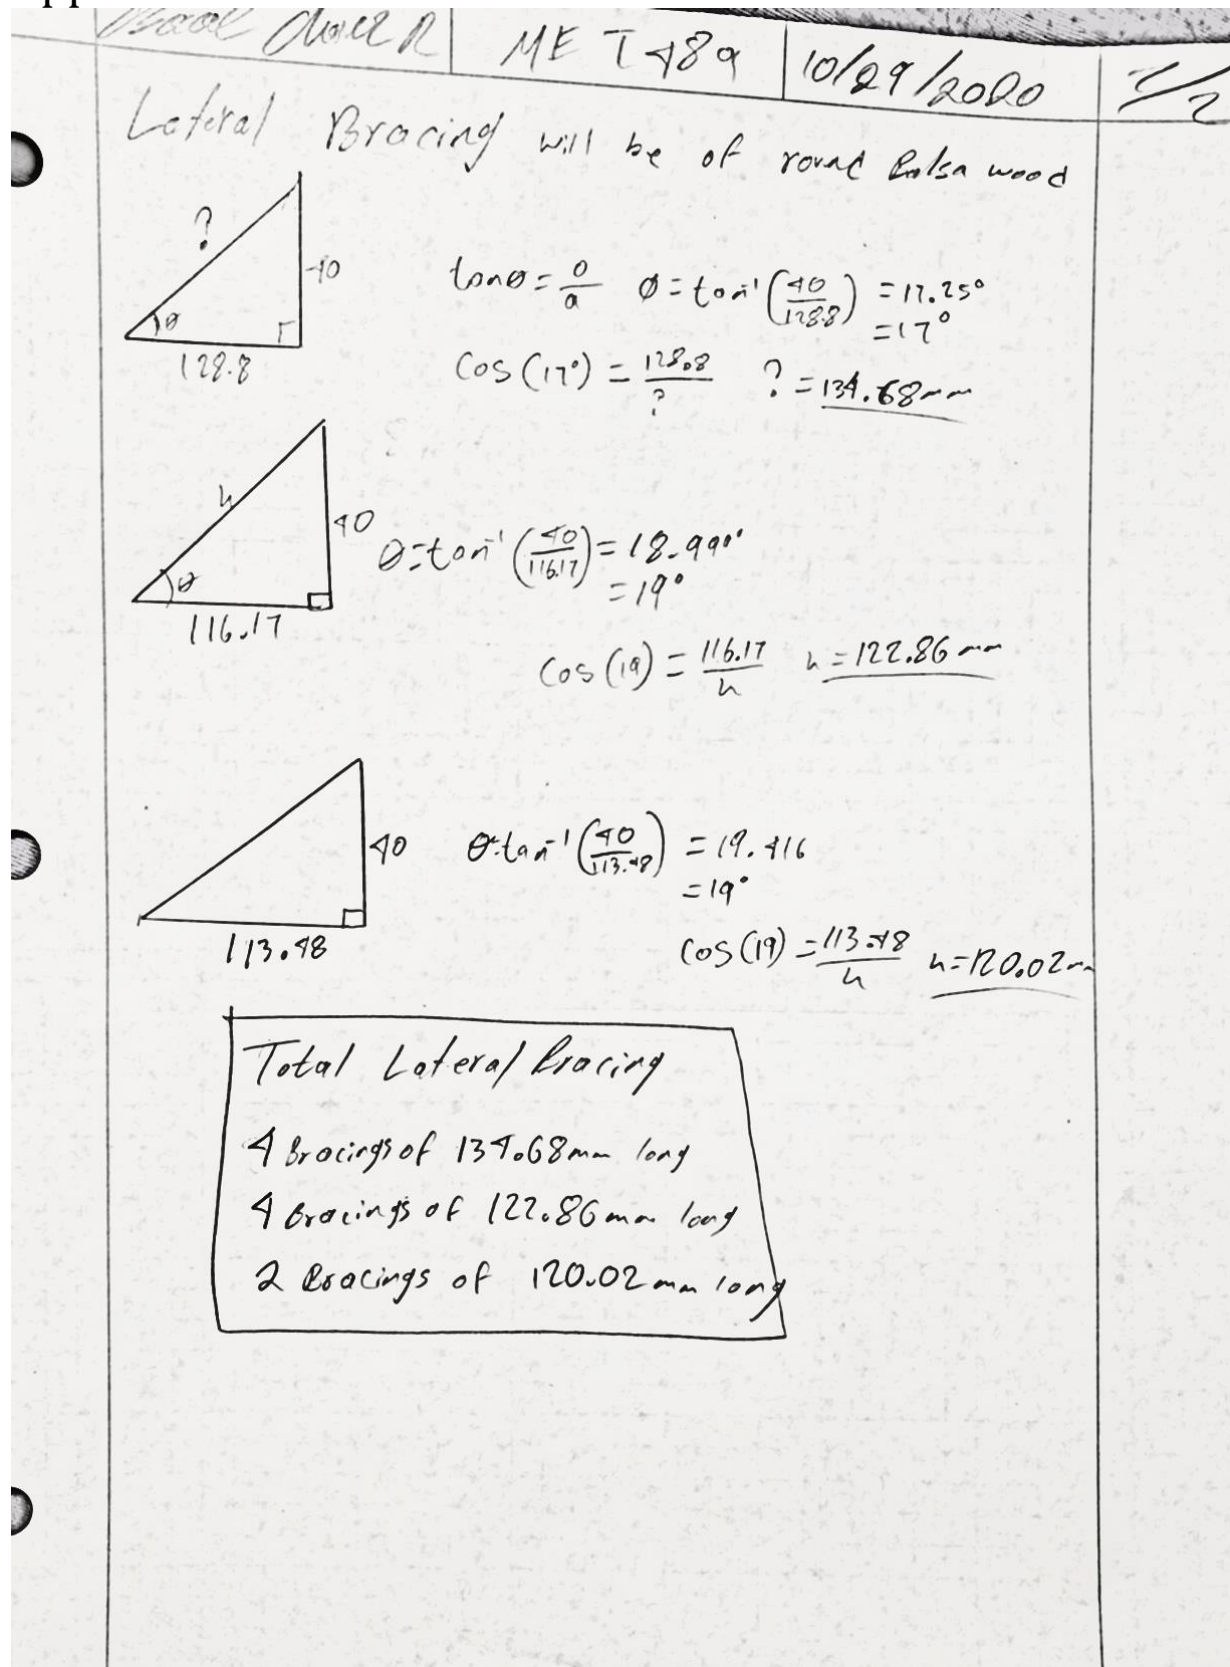 MET 489 10/29/2020 1/2
Lateral Bracing will be of round Balsa wood
?
40
θ
128.8
tanθ = o/a θ = tan⁻¹(40/128.8) = 17.25°
= 17°
cos(17°) = 128.8/? ? = 134.68mm
h
40
θ
116.17
θ = tan⁻¹(40/116.17) = 18.999°
= 19°
cos(19) = 116.17/h h = 122.86mm
40
113.48
θ = tan⁻¹(40/113.48) = 19.416
= 19°
cos(19) = 113.48/h h = 120.02mm
Total Lateral Bracing
4 Bracings of 134.68mm long
4 Bracings of 122.86mm long
2 Bracings of 120.02mm long